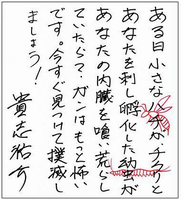 ある日小さな蜂がチクッと
あなたを刺し孵化した幼虫が
あなたの内臓を喰い荒らし
ていたら？ガンはもっと怖い
です。今すぐ見つけて撲滅し
ましょう！
貴志祐介